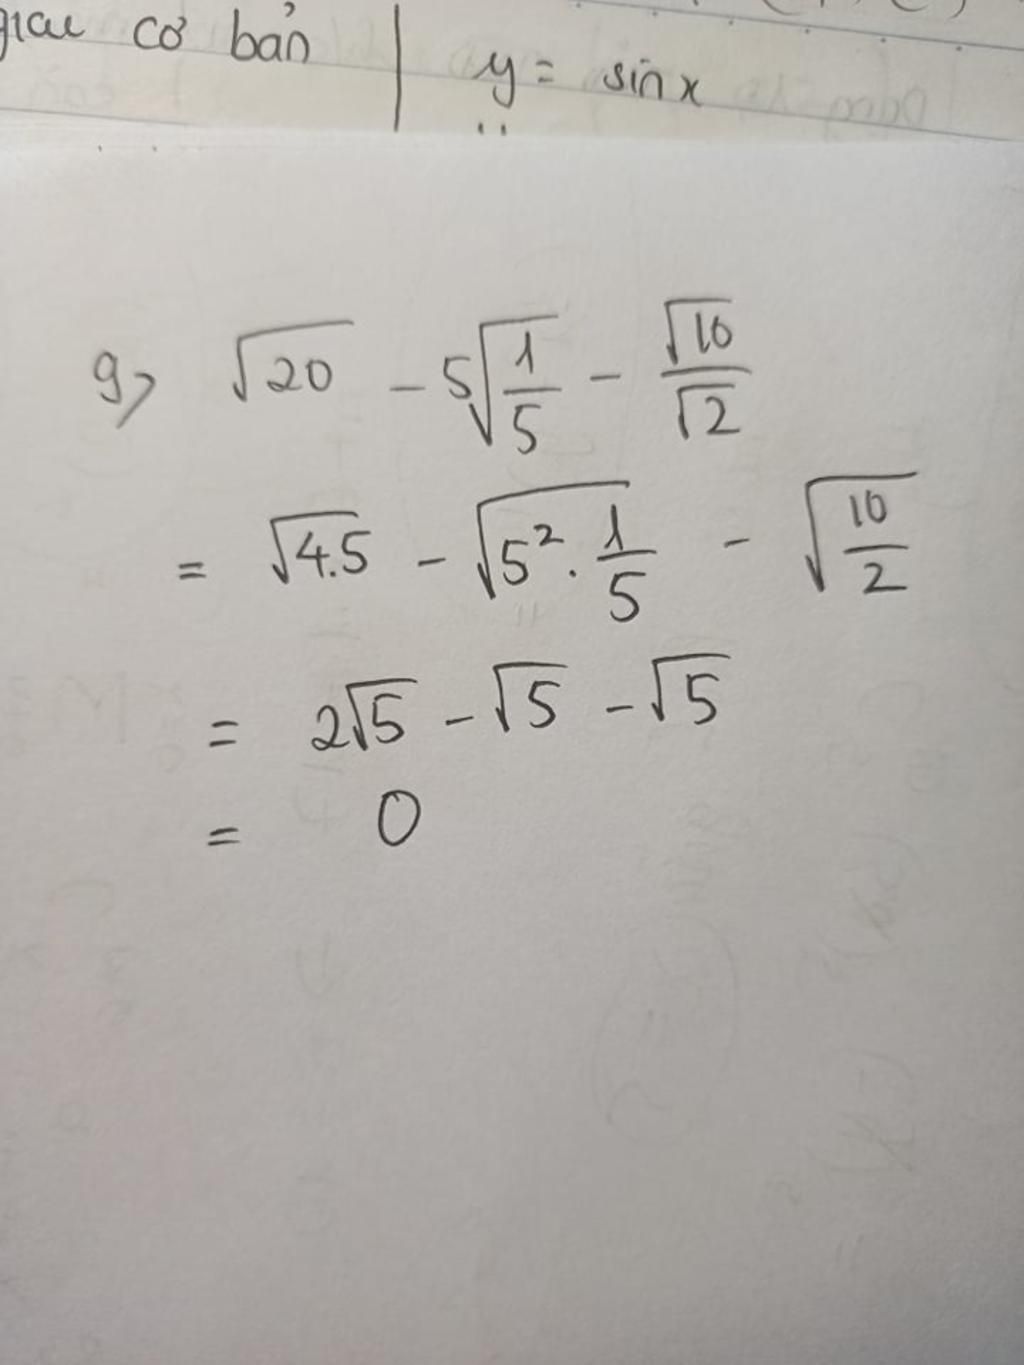 giác cơ bản | y = sin x
g> √20 - 5√(1/5) - √10/√2
= √4.5 - √(5² . 1/5) - √(10/2)
= 2√5 - √5 - √5
= 0